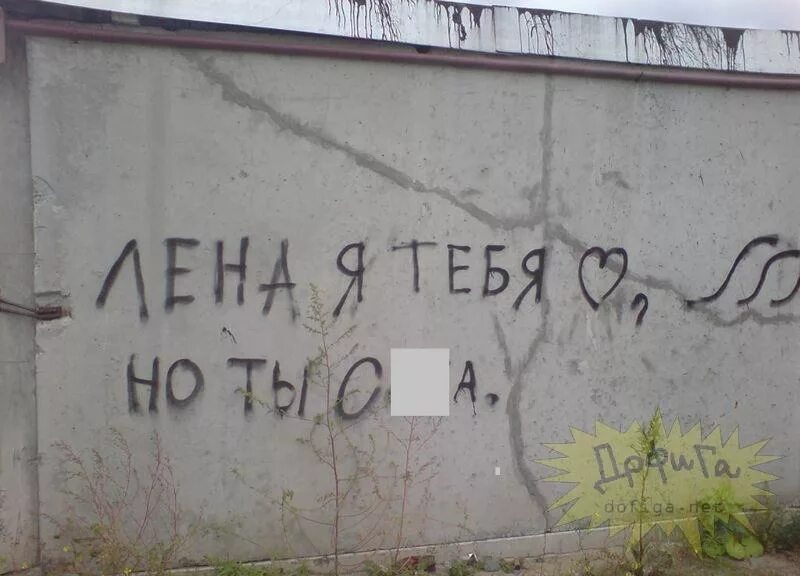 ЛЕНА Я ТЕБЯ ♡,
НО ТЫ
ДоФиГа
dofiga.net